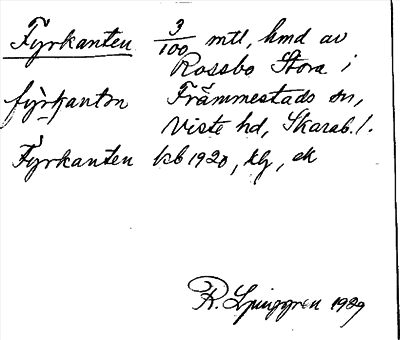 Fyrkanten 3/100 mtl, hmd av
Rossbo Stora i
fyrkantɘn Främmestads sn,
Viste hd, Skarab. l.
Fyrkanten kb 1920, tlg, ek
R. Ljunggren 1929